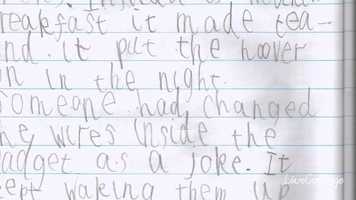 Instead
reakfast it made tea-
nd. it put the hoover
n in the night.
omeone had changed
he wires inside the
adget as a joke. It
ept waking them up